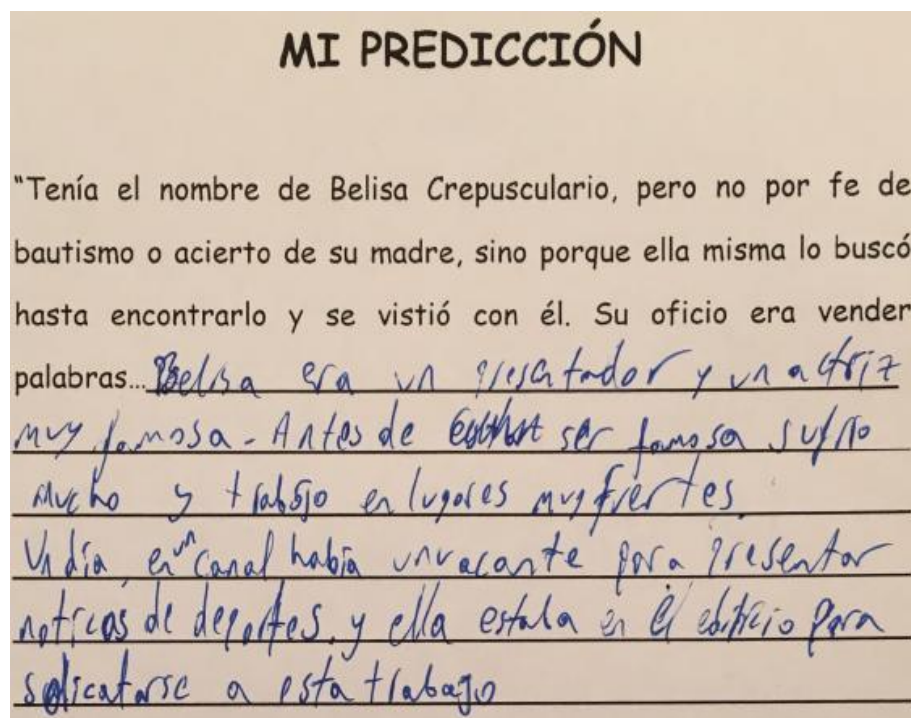 MI PREDICCIÓN
"Tenía el nombre de Belisa Crepusculario, pero no por fe de
bautismo o acierto de su madre, sino porque ella misma lo buscó
hasta encontrarlo y se vistió con él. Su oficio era vender
palabras... Belisa era un presentador y un actriz
muy famosa. Antes de ser famosa sufrio
mucho y trabajo en lugares muy fuertes.
Un día en un canal había un vacante para presentar
noticas de deportes, y ella estaba en el edificio para
solicatarse a esta trabajo